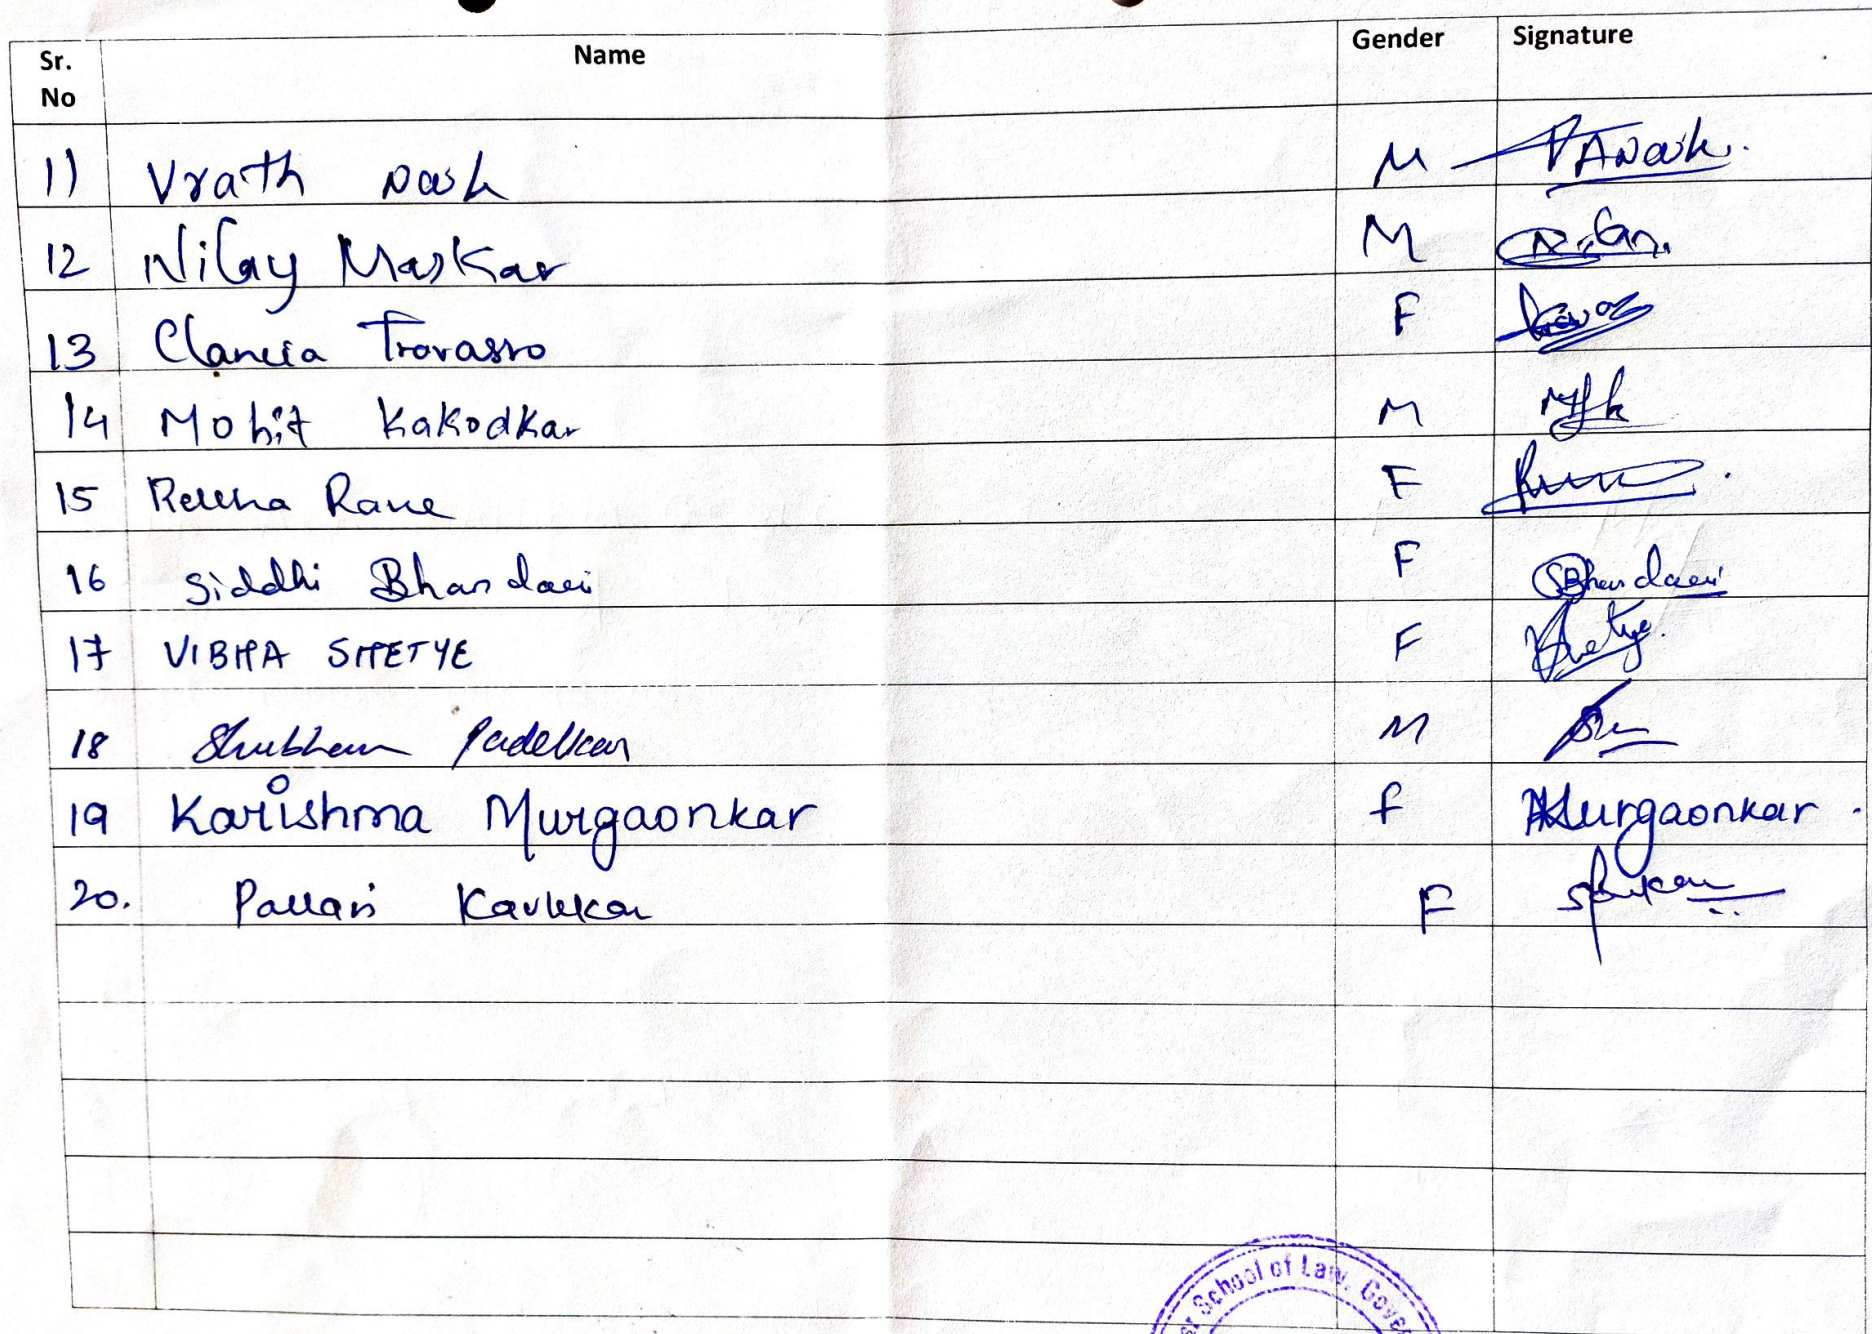 Sr. No Name Gender Signature
11 Vrath Naik M
12 Nilay Maskar M
13 Clancia Travasso F
14 Mohit Kakodkar M
15 Rekha Rane F
16 Siddhi Bhandari F SBhandari
17 VIBHA SHETYE F Shetye
18 Shubham Padelkar M
19 Karishma Murgaonkar f Murgaonkar
20. Pallavi Kavlekar F
School of Law, Gover